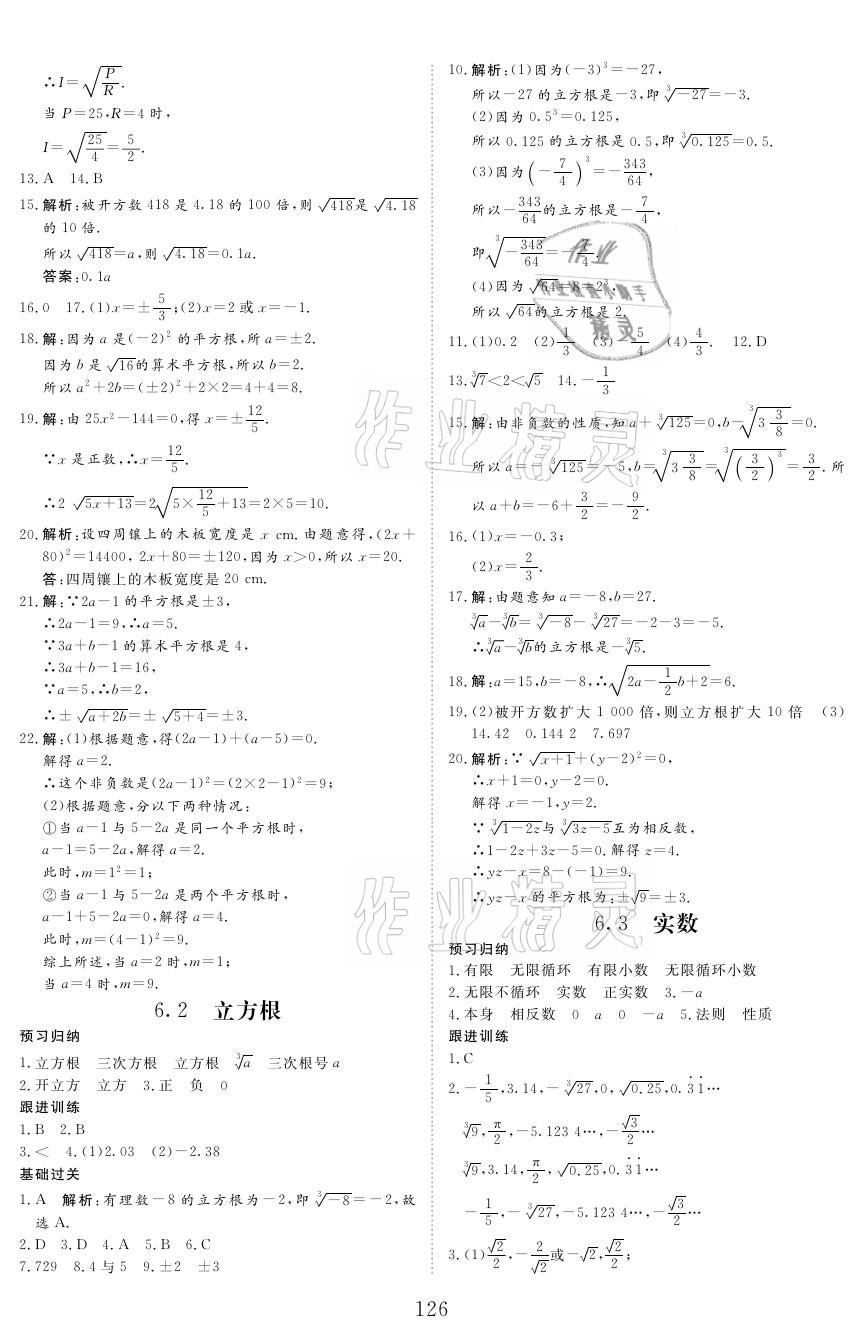 ∴I=√(P/R).
当 P=25,R=4 时,
I=√(25/4)=5/2.
13.A 14.B
15.解析:被开方数 418 是 4.18 的 100 倍,则 √418是 √4.18
的 10 倍.
所以 √418=a,则 √4.18=0.1a.
答案:0.1a
16.0 17.(1)x=±5/3;(2)x=2 或 x=-1.
18.解:因为 a 是(-2)² 的平方根,所 a=±2.
因为 b 是 √16的算术平方根,所以 b=2.
所以 a²+2b=(±2)²+2×2=4+4=8.
19.解:由 25x²-144=0,得 x=±12/5.
∵x 是正数,∴x=12/5.
∴2 √(5x+13)=2√(5×12/5+13)=2×5=10.
20.解析:设四周镶上的木板宽度是 x cm.由题意得,(2x+
80)²=14400, 2x+80=±120,因为 x>0,所以 x=20.
答:四周镶上的木板宽度是 20 cm.
21.解:∵2a-1 的平方根是±3,
∴2a-1=9,∴a=5.
∵3a+b-1 的算术平方根是 4,
∴3a+b-1=16,
∵a=5,∴b=2,
∴± √(a+2b)=± √(5+4)=±3.
22.解:(1)根据题意,得(2a-1)+(a-5)=0.
解得 a=2.
∴这个非负数是(2a-1)²=(2×2-1)²=9;
(2)根据题意,分以下两种情况:
①当 a-1 与 5-2a 是同一个平方根时,
a-1=5-2a,解得 a=2.
此时,m=1²=1;
②当 a-1 与 5-2a 是两个平方根时,
a-1+5-2a=0,解得 a=4.
此时,m=(4-1)²=9.
综上所述,当 a=2 时,m=1;
当 a=4 时,m=9.
6.2 立方根
预习归纳
1.立方根 三次方根 立方根 ∛a 三次根号 a
2.开立方 立方 3.正 负 0
跟进训练
1.B 2.B
3.< 4.(1)2.03 (2)-2.38
基础过关
1.A 解析:有理数-8 的立方根为-2,即 ∛-8=-2,故
选 A.
2.D 3.D 4.A 5.B 6.C
7.729 8.4 与 5 9.±2 ±3
10.解析:(1)因为(-3)³=-27,
所以-27 的立方根是-3,即 ∛-27=-3.
(2)因为 0.5³=0.125,
所以 0.125 的立方根是 0.5,即 ∛0.125=0.5.
(3)因为(-7/4)³=-343/64,
所以-343/64 的立方根是-7/4,
即∛(-343/64)=-7/4.
(4)因为 √64=8=2³,
所以 √64的立方根是 2.
11.(1)0.2 (2)1/3 (3)-5/4 (4)4/3. 12.D
13.∛7<2<√5 14.-1/3
15.解:由非负数的性质,知 a+ ∛125=0,b-∛(3 3/8)=0.
所以 a=- ∛125=-5,b=∛(3 3/8)=∛((3/2)³)=3/2.所
以 a+b=-6+3/2=-9/2.
16.(1)x=-0.3;
(2)x=2/3.
17.解:由题意知 a=-8,b=27.
∛a-∛b= ∛-8- ∛27=-2-3=-5.
∴∛a-∛b的立方根是-∛5.
18.解:a=15,b=-8,∴√(2a-1/2b+2)=6.
19.(2)被开方数扩大 1 000 倍,则立方根扩大 10 倍 (3)
14.42 0.144 2 7.697
20.解析:∵ √(x+1)+(y-2)²=0,
∴x+1=0,y-2=0.
解得 x=-1,y=2.
∵ ∛(1-2z)与 ∛(3z-5)互为相反数,
∴1-2z+3z-5=0.解得 z=4.
∴yz-x=8-(-1)=9.
∴yz-x 的平方根为:±√9=±3.
6.3 实数
预习归纳
1.有限 无限循环 有限小数 无限循环小数
2.无限不循环 实数 正实数 3.-a
4.本身 相反数 0 a 0 -a 5.法则 性质
跟进训练
1.C
2.-1/5,3.14,- ∛27,0, √0.25,0.3̇1̇…
∛9,π/2,-5.123 4…,-√3/2…
∛9,3.14,π/2, √0.25,0.3̇1̇…
-1/5,- ∛27,-5.123 4…,-√3/2…
3.(1)√2/2,-2/√2或-√2,√2/2;
126
作业精灵
作业精灵
作业
作业检查小助手
精灵